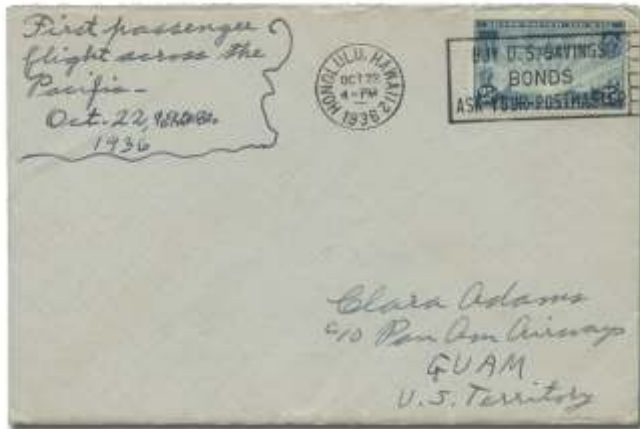 First passenger
flight across the
Pacific—
Oct. 22,
1936
HONOLULU, HAWAII
OCT 22
4-PM
1936
BUY U.S. SAVINGS
BONDS
ASK YOUR POSTMASTER
Clara Adams
c/o Pan Am Airways
GUAM
U.S. Territory